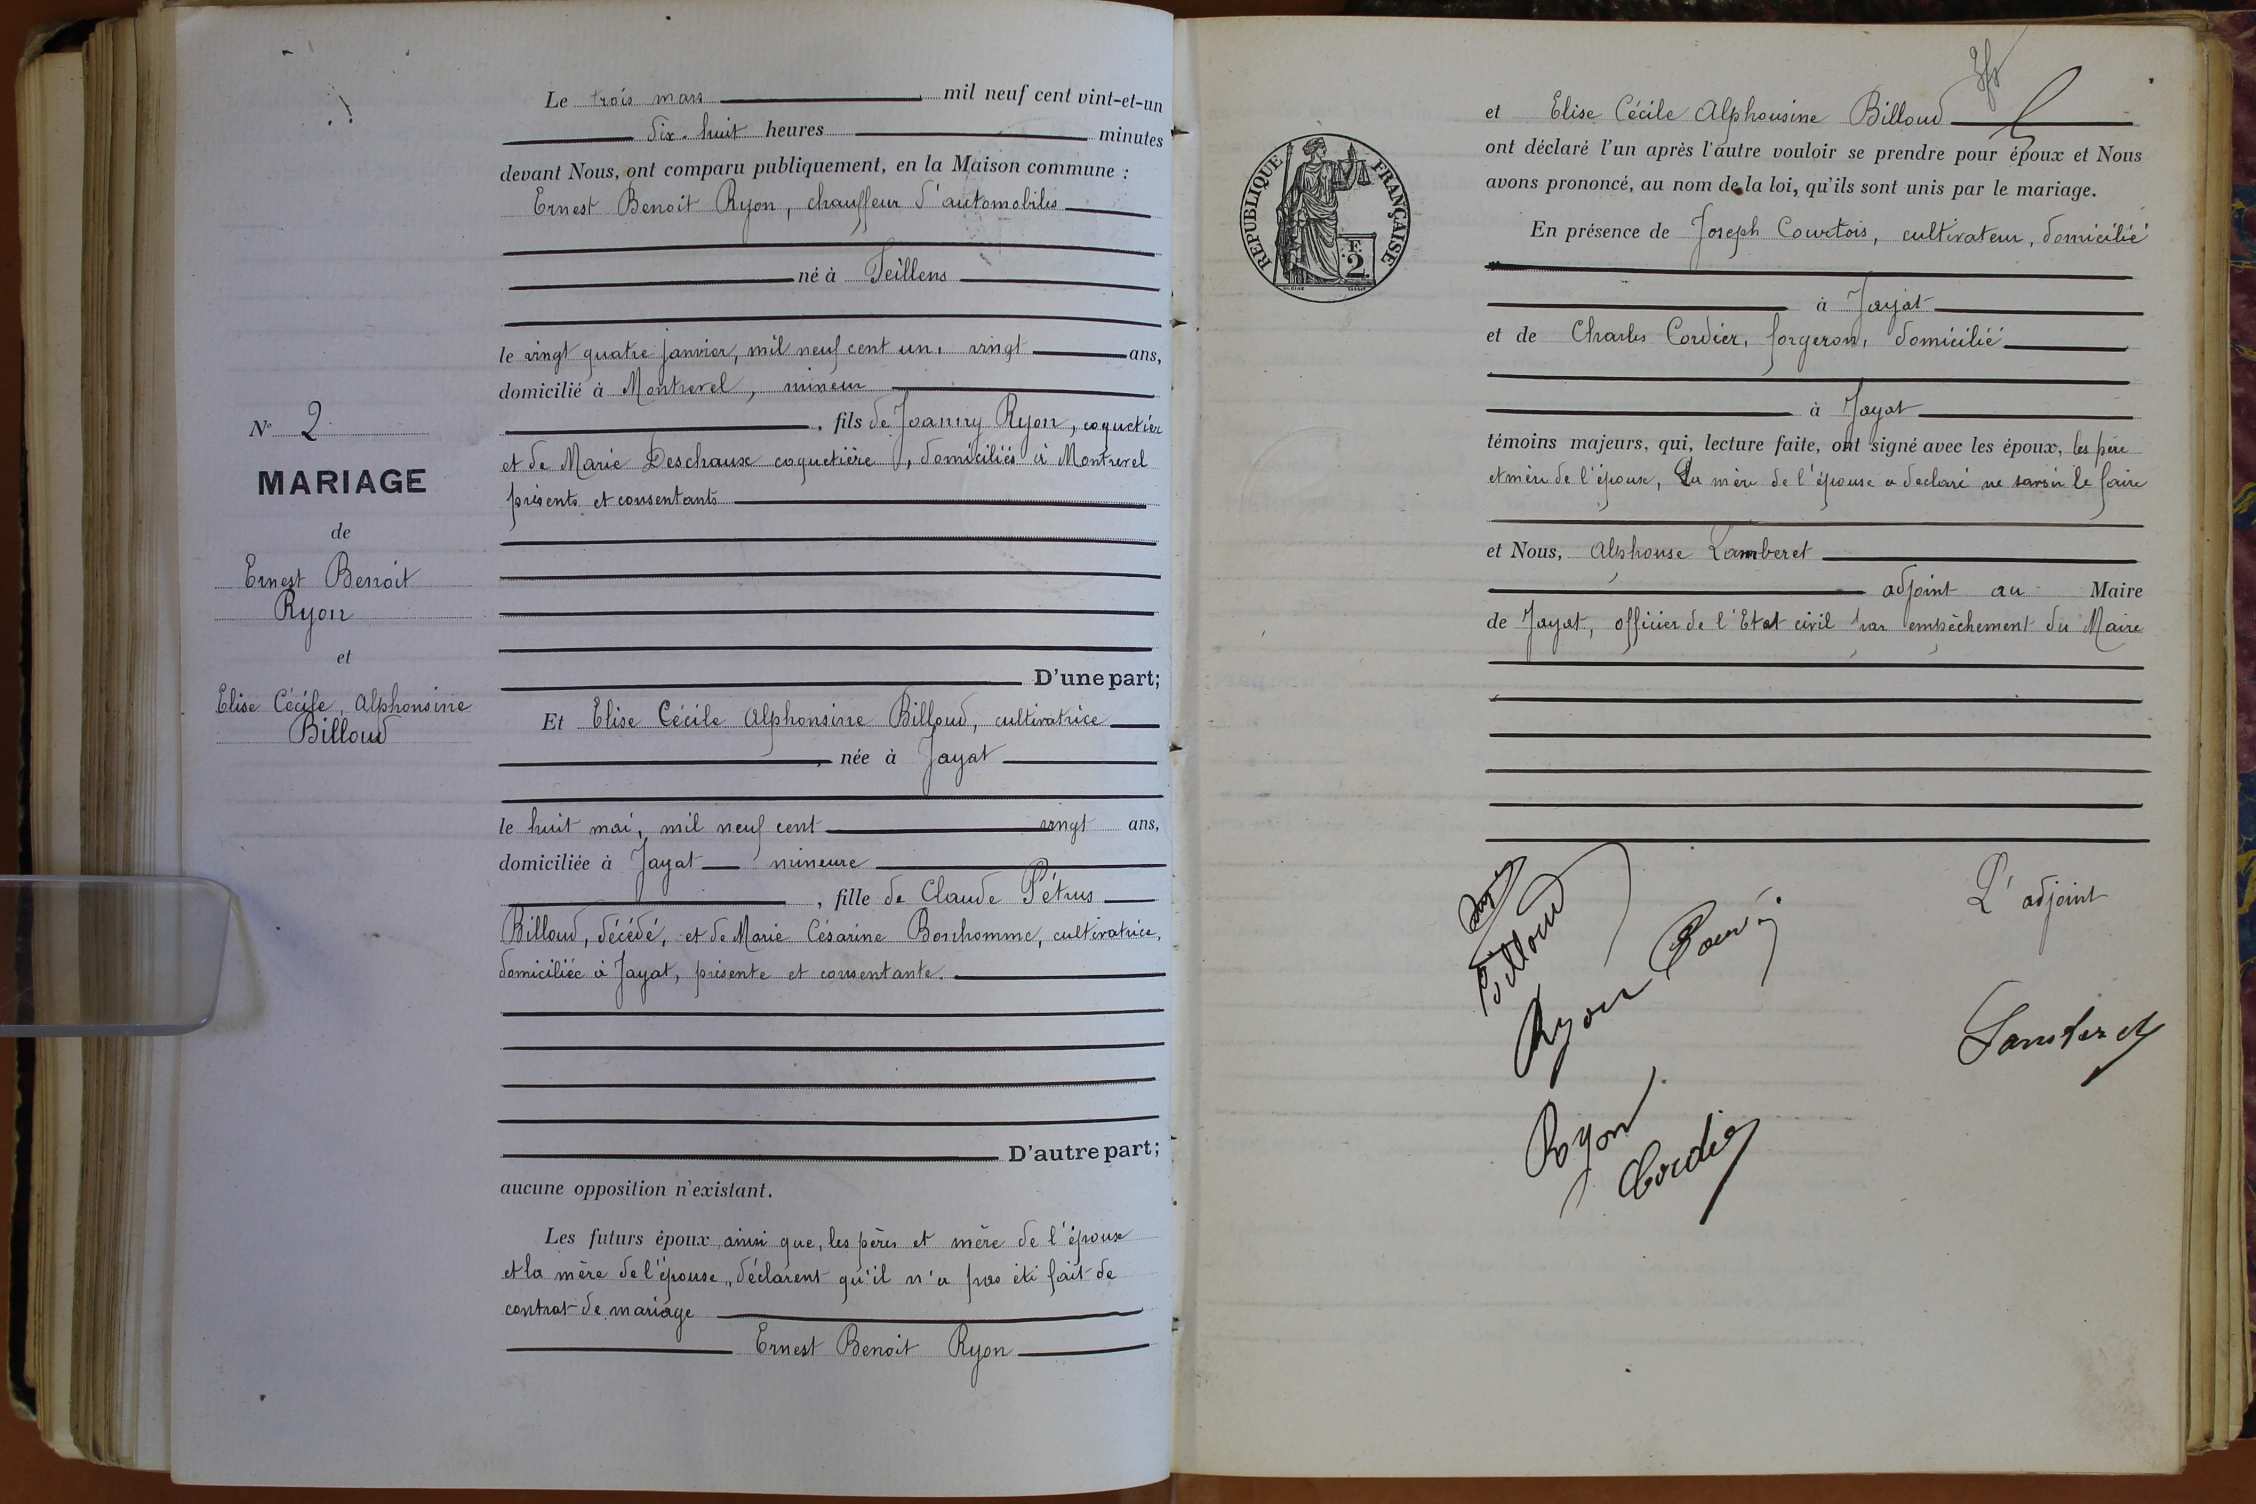 N° 2
MARIAGE
de
Ernest Benoit
Ryon
et
Elise Cécile, Alphonsine
Billoud
Le trois mars mil neuf cent vint-et-un
dix-huit heures minutes
devant Nous, ont comparu publiquement, en la Maison commune :
Ernest Benoit Ryon, chauffeur d'automobiles
né à Feillens
le vingt quatre janvier, mil neuf cent un, vingt ans,
domicilié à Montrevel, mineur
, fils de Joanny Ryon, coquetier
et de Marie Deschaux coquetière, domiciliés à Montrevel
présents et consentants
D'une part;
Et Elise Cécile Alphonsine Billoud, cultivatrice
, née à Jayat
le huit mai, mil neuf cent vingt ans,
domiciliée à Jayat mineure
, fille de Claude Pétrus
Billoud, décédé, et de Marie Césarine Bonhomme, cultivatrice,
domiciliée à Jayat, présente et consentante.
D'autre part;
aucune opposition n'existant.
Les futurs époux ainsi que, les pères et mère de l'époux
et la mère de l'épouse, déclarent qu'il n'a pas été fait de
contrat de mariage
Ernest Benoit Ryon
REPUBLIQUE FRANÇAISE
F.
2
et Elise Cécile Alphonsine Billoud
ont déclaré l'un après l'autre vouloir se prendre pour époux et Nous
avons prononcé, au nom de la loi, qu'ils sont unis par le mariage.
En présence de Joseph Courtois, cultivateur, domicilié
à Jayat
et de Charles Cordier, forgeron, domicilié
à Jayat
témoins majeurs, qui, lecture faite, ont signé avec les époux, les père
et mère de l'époux, La mère de l'épouse a déclaré ne savoir le faire
et Nous, Alphonse Lamberet
adjoint au Maire
de Jayat, officier de l'Etat civil par empêchement du Maire
L'adjoint
Billoud
Ryon
Lamberet
Ryon
Cordier